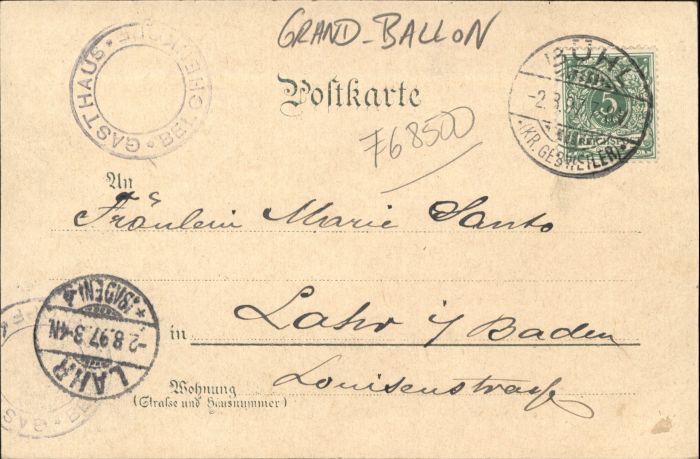 GRAND-BALLON
GASTHAUS * BELCHENKOPF *
Postkarte
BÜHL
-2.8.97
(KR. GEBWEILER) **
5
76 8500
An
Fräulein Marie Santo
*(BADEN) a.
-2.8.97. 3-4N
LAHR
in
Lahr i/Baden
Wohnung
(Straße und Hausnummer)
Louisenstrasse